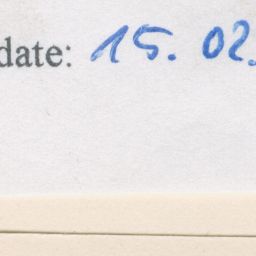 date: 15. 02.